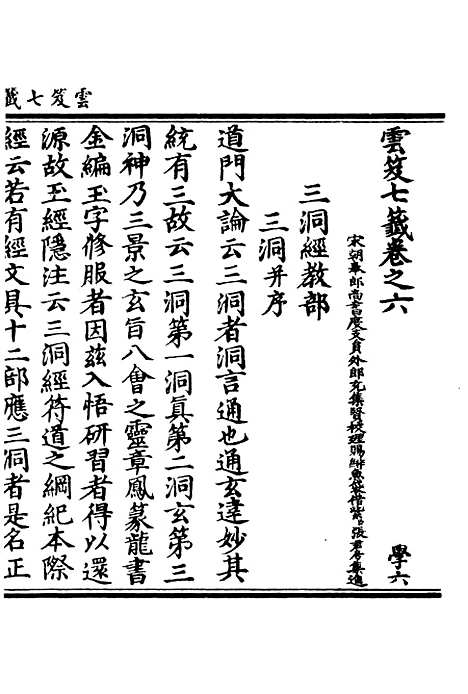 雲笈七籤
雲笈七籤卷之六
學六
宋朝奉郎尚書度支員外郎充集賢校理賜緋魚袋借紫張君房集進
三洞經教部
三洞并序
道門大論云三洞者洞言通也通玄達妙其
統有三故云三洞第一洞真第二洞玄第三
洞神乃三景之玄旨八會之靈章鳳篆龍書
金編玉字修服者因茲入悟研習者得以還
源故玉經隱注云三洞經符道之綱紀本際
經云若有經文具十二部應三洞者是名正